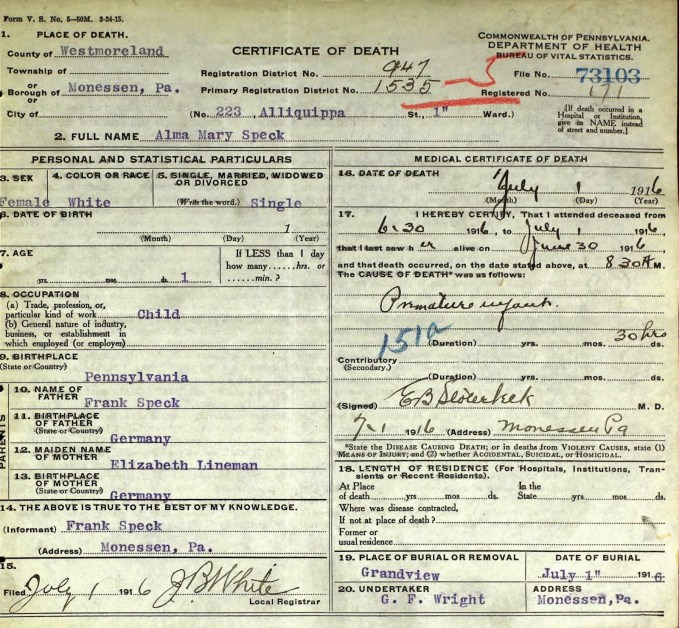 Form V. S. No. 5—50M. 2-24-15.
1. PLACE OF DEATH.
County of Westmoreland
Township of
or
Borough of Monessen, Pa.
or
City of
CERTIFICATE OF DEATH
Registration District No. 947
Primary Registration District No. 1535
(No. 223 , Alliquippa St., 1" Ward.)
COMMONWEALTH OF PENNSYLVANIA.
DEPARTMENT OF HEALTH
BUREAU OF VITAL STATISTICS.
File No. 73103
Registered No. 171
[If death occurred in a
Hospital or Institution,
give its NAME instead
of street and number.]
2. FULL NAME Alma Mary Speck
PERSONAL AND STATISTICAL PARTICULARS
3. SEX
Female
4. COLOR OR RACE
White
5. SINGLE, MARRIED, WIDOWED
OR DIVORCED
(Write the word.) Single
6. DATE OF BIRTH
1
(Month) (Day) (Year)
7. AGE
yrs. mos. ds. 1
If LESS than 1 day
how many......hrs. or
......min.?
8. OCCUPATION
(a) Trade, profession, or,
particular kind of work Child
(b) General nature of industry,
business, or establishment in
which employed (or employer)
9. BIRTHPLACE
(State or Country)
Pennsylvania
PARENTS
10. NAME OF
FATHER
Frank Speck
11. BIRTHPLACE
OF FATHER
(State or Country)
Germany
12. MAIDEN NAME
OF MOTHER
Elizabeth Lineman
13. BIRTHPLACE
OF MOTHER
(State or Country)
Germany
14. THE ABOVE IS TRUE TO THE BEST OF MY KNOWLEDGE.
(Informant) Frank Speck
(Address) Monessen, Pa.
15.
Filed July 1 1916 J B White
Local Registrar
MEDICAL CERTIFICATE OF DEATH
16. DATE OF DEATH
July 1 1916
(Month) (Day) (Year)
17. I HEREBY CERTIFY, That I attended deceased from
6-30 1916, to July 1 1916,
that I last saw her alive on June 30 1916
and that death occurred, on the date stated above, at 8 30 A M.
The CAUSE OF DEATH* was as follows:
Premature infant.
151a
30 hrs
(Duration) yrs. mos. ds.
Contributory
(Secondary.)
(Duration) yrs. mos. ds.
(Signed) E B M. D.
7-1 1916 (Address) Monessen Pa
*State the DISEASE CAUSING DEATH; or in deaths from VIOLENT CAUSES, state (1)
MEANS OF INJURY; and (2) whether ACCIDENTAL, SUICIDAL, or HOMICIDAL.
18. LENGTH OF RESIDENCE (For Hospitals, Institutions, Tran-
sients or Recent Residents).
At Place
of death yrs. mos. ds.
In the
State yrs. mos. ds.
Where was disease contracted,
If not at place of death?
Former or
usual residence
19. PLACE OF BURIAL OR REMOVAL
Grandview
DATE OF BURIAL
July 1" 1916
20. UNDERTAKER
G. F. Wright
ADDRESS
Monessen,Pa.